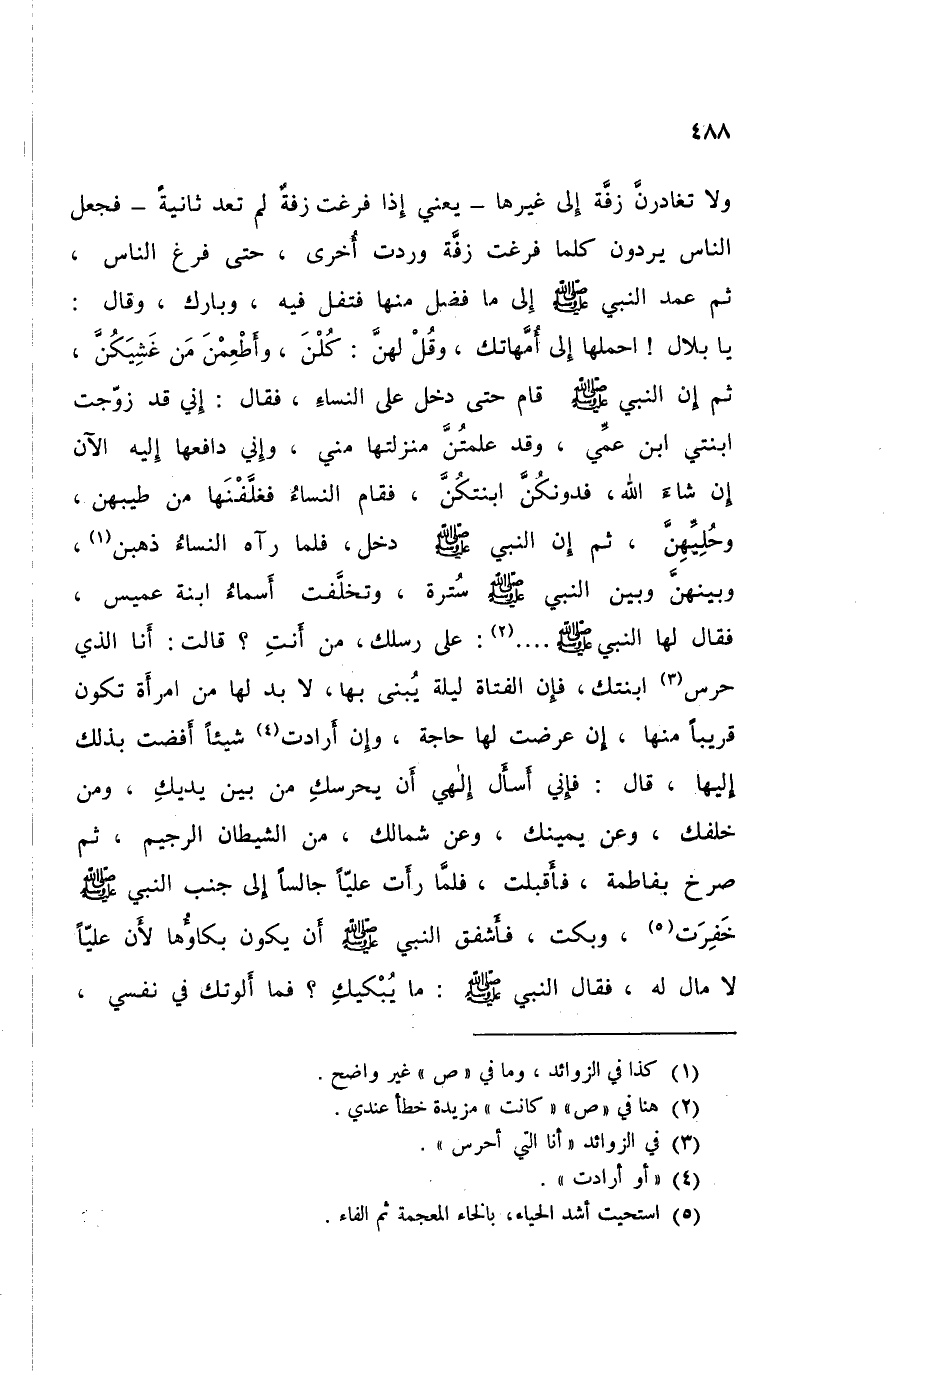 ٤٨٨
ولا تغادرنَّ زفَّة إلى غيرها – يعني إذا فرغت زفةٌ لم تعد ثانيةً – فجعل
الناس يردون كلما فرغت زفَّة وردت أُخرى ، حتى فرغ الناس ،
ثم عمد النبي ﷺ إلى ما فضل منها فتفل فيه ، وبارك ، وقال :
يا بلال ! احملها إلى أُمَّهاتك ، وقُلْ لهنَّ : كُلْنَ ، وأَطْعِمْنَ مَن غَشِيَكُنَّ ،
ثم إن النبي ﷺ قام حتى دخل على النساءِ ، فقال : إني قد زوّجت
ابنتي ابن عمِّي ، وقد علمتُنَّ منزلتها مني ، وإني دافعها إليه الآن
إن شاءَ الله ، فدونكُنَّ ابنتكُنَّ ، فقام النساءُ فغلَّفْنَها من طيبهن ،
وحُلِيِّهِنَّ ، ثم إن النبي ﷺ دخل ، فلما رآه النساءُ ذهبن(١) ،
وبينهنَّ وبين النبي ﷺ سُترة ، وتخلَّفت أَسماءُ ابنة عميس ،
فقال لها النبي ﷺ ....(٢) : على رسلك ، من أَنتِ ؟ قالت : أَنا الذي
حرس(٣) ابنتك ، فإن الفتاة ليلة يُبنى بها ، لا بد لها من امرأَة تكون
قريباً منها ، إن عرضت لها حاجة ، وإن أَرادت(٤) شيئاً أَفضت بذلك
إليها ، قال : فإني أَسأَل إلٰهي أَن يحرسكِ من بين يديكِ ، ومن
خلفك ، وعن يمينك ، وعن شمالك ، من الشيطان الرجيم ، ثم
صرخ بفاطمة ، فأَقبلت ، فلمَّا رأَت عليّاً جالساً إلى جنب النبي ﷺ
خَفِرَت(٥) ، وبكت ، فأَشفق النبي ﷺ أَن يكون بكاوُها لأَن عليّاً
لا مال له ، فقال النبي ﷺ : ما يُبْكيكِ ؟ فما أَلوتك في نفسي ،
(١) كذا في الزوائد ، وما في «ص» غير واضح .
(٢) هنا في «ص» «كانت» مزيدة خطأ عندي .
(٣) في الزوائد «أنا التي أحرس» .
(٤) «أو أرادت» .
(٥) استحيت أشد الحياء ، بالخاء المعجمة ثم الفاء .